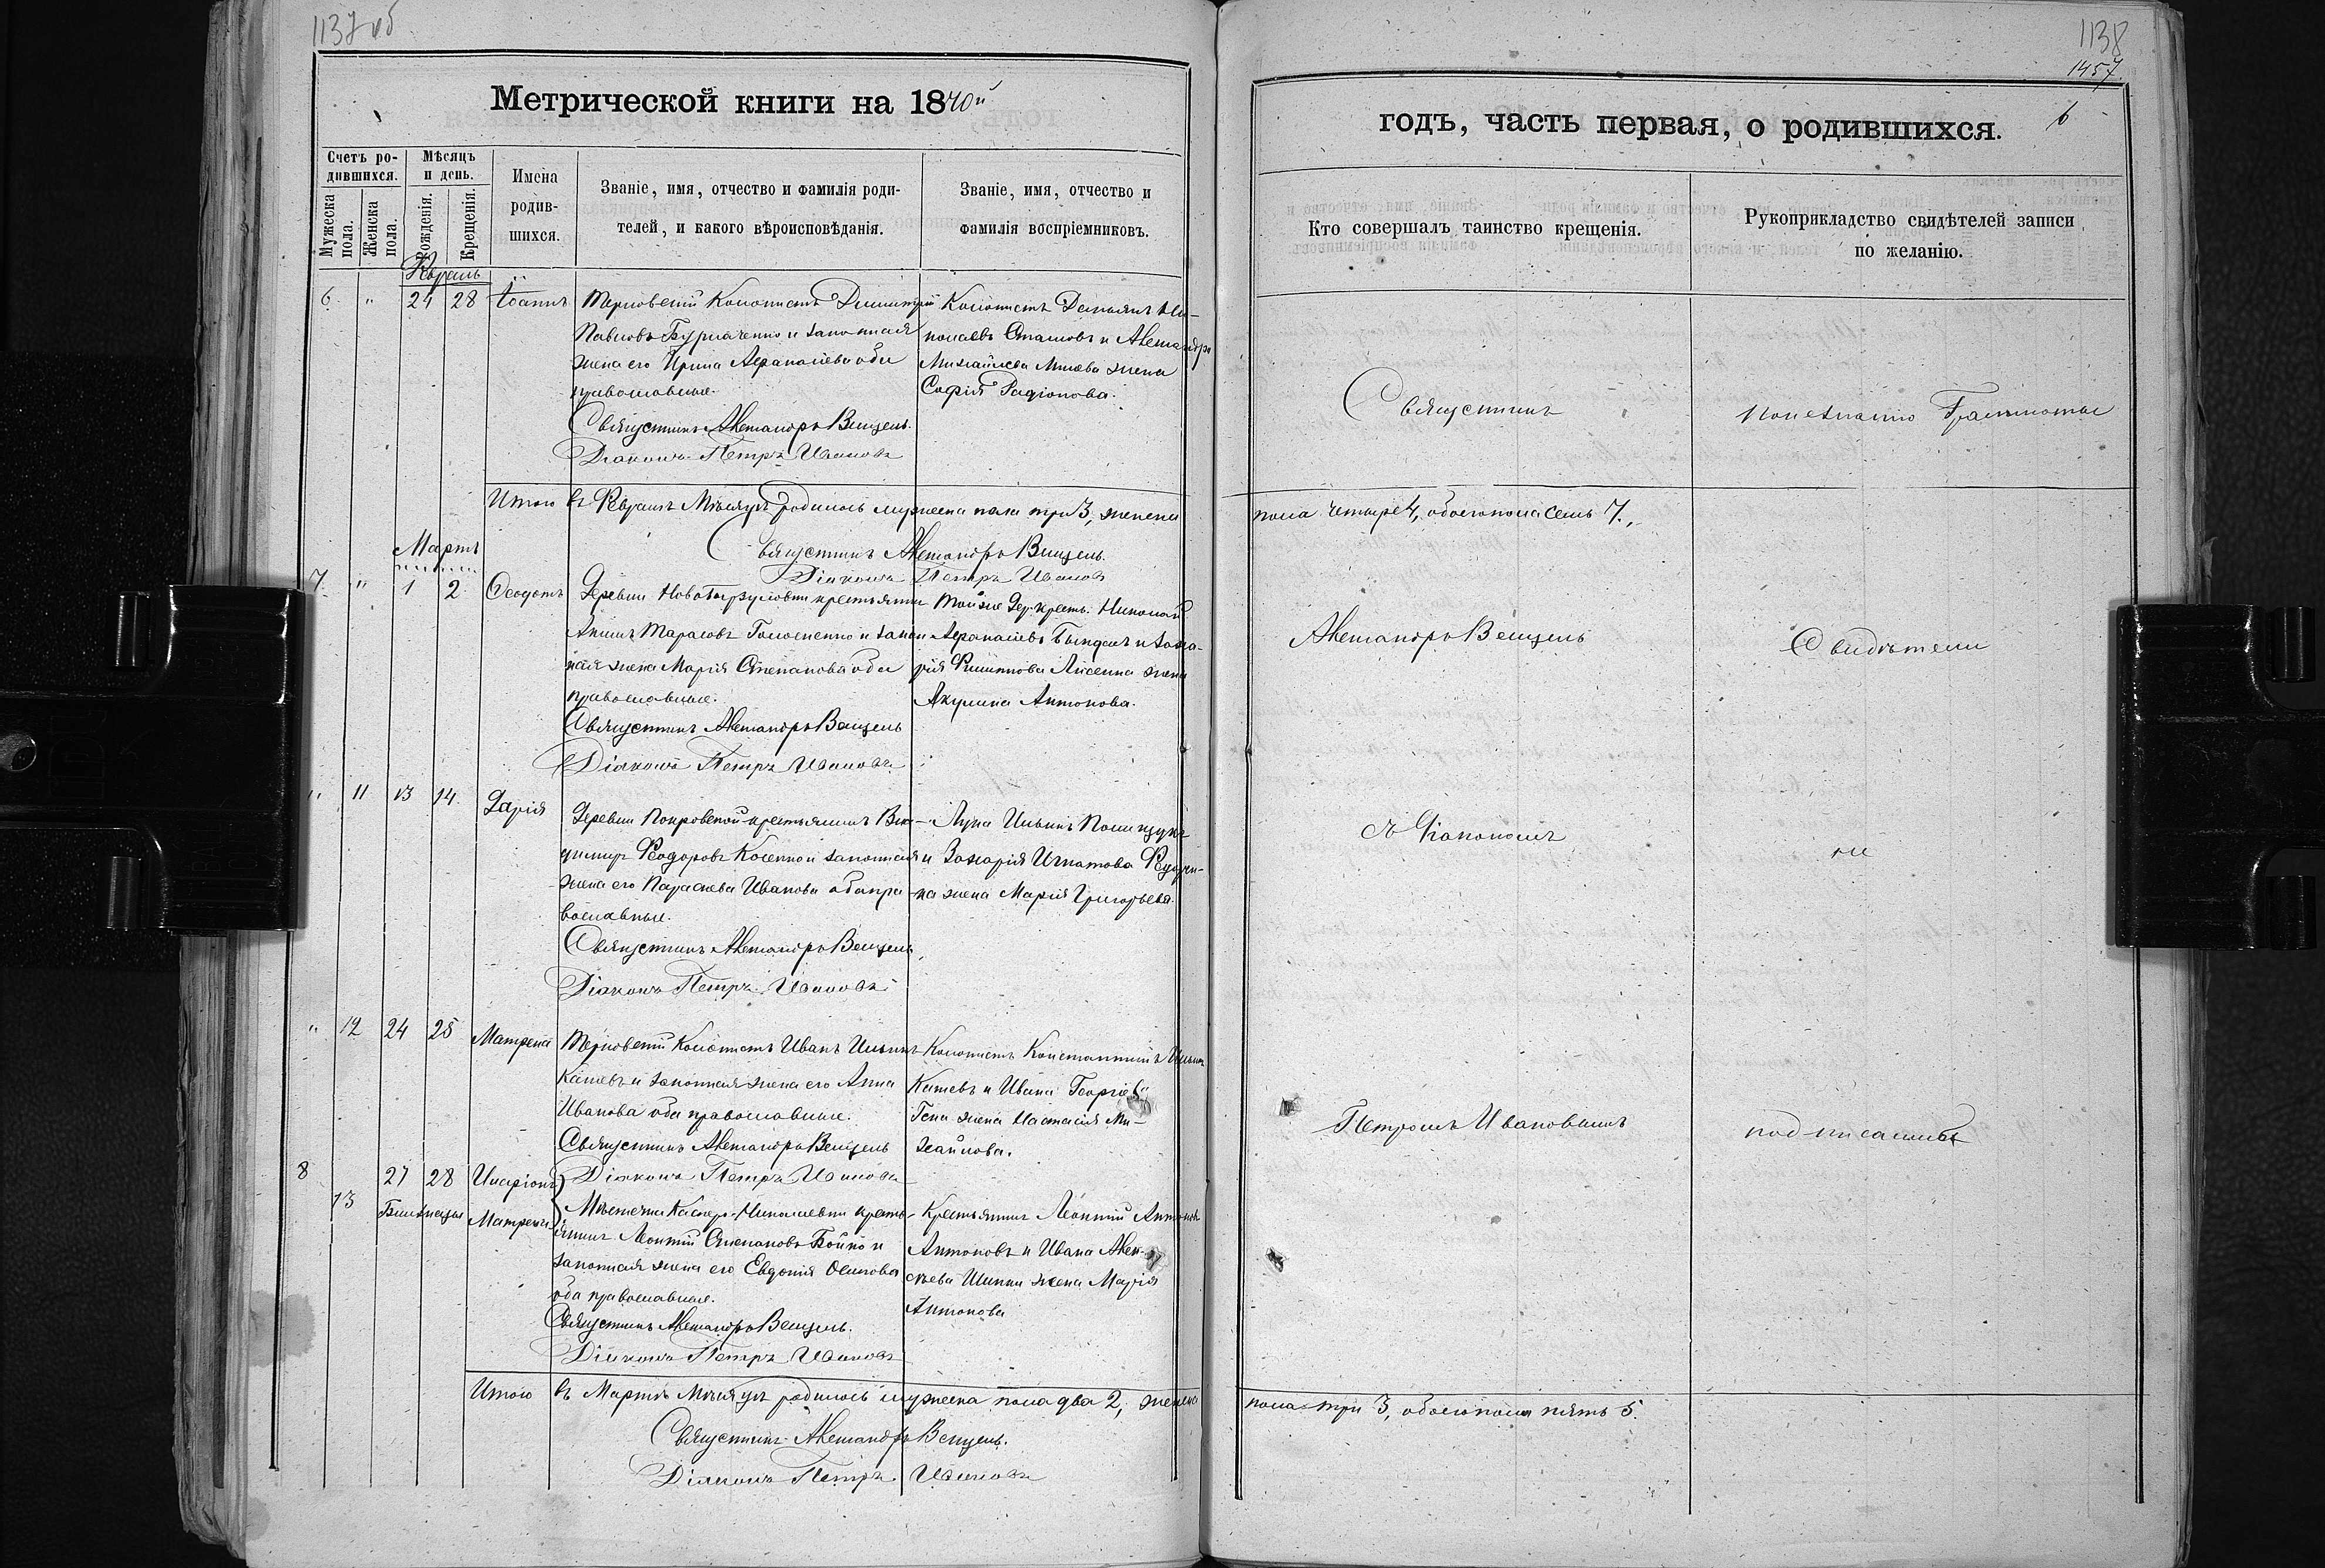 1137 об
Метрической книги на 1870й
Счетъ ро-
дившихся.
Мѣсяцъ
и день.
Мужеска
пола.
Женска
пола.
Рожденія.
Крещенія.
Имена
родив-
шихся.
Званіе, имя, отчество и фамилія роди-
телей, и какого вѣроисповѣданія.
Званіе, имя, отчество и
фамилія воспріемниковъ.
6 " 24 28 Іоаннъ
Терновскій Колонистъ Димитрій
Павловъ и законная
жена его Ирина Афанасіева оба
православные.
Священникъ Александръ Венцель.
Діаконъ Петръ Ивановъ
Колонистъ Демьянъ Ни-
колаевъ и Александра
Михайлова жена
Софія Родіонова.
Итого въ Февралѣ Мѣсяцѣ родилось мужеска пола три 3, женска
Священникъ Александръ Венцель.
Діаконъ Петръ Ивановъ
Мартъ
7. " 1 2 Ѳеодотъ
Деревни крестьянинъ
Тарасовъ и закон
ная жена Марія Степанова оба
православные.
Священникъ Александръ Венцель
Діаконъ Петръ Ивановъ
Той же Дер. крест. Николай
Афанасіевъ и Заха-
рія Филиппова жена
Акулина Антонова.
" 11 13 14 Дарія
Деревни Покровской крестьянинъ Вла-
димиръ Ѳеодоровъ и законная
жена его Параскева Иванова оба пра
вославные.
Священникъ Александръ Венцель
Діаконъ Петръ Ивановъ
Лука Ильинъ Полищукъ
и Захарія Игнатова
ка жена Марія Григорьева.
" 12 24 25 Матрена
Терновскій Колонистъ Иванъ Ильинъ
и законная жена его Анна
Иванова оба православные.
Священникъ Александръ Венцель
Діаконъ Петръ Ивановъ
Колонистъ Константинъ Ильинъ
и Ивана Георгіева
жена Настасія Ми-
хайлова.
8 27 28 Иларіонъ
13 Близнецы Матрена
Мѣстечка крестья-
янинъ Леонтій Степановъ Бойко и
законная жена его Евдокія Осипова
оба православные.
Священникъ Александръ Венцель.
Діаконъ Петръ Ивановъ
Крестьянинъ Леонтій Антоновъ
Антоновъ и Ивана Алек-
сѣева жена Марія
Антонова
Итого въ Мартѣ Мѣсяцѣ родилось мужеска пола два 2, женска
Священникъ Александръ Венцель.
Діаконъ Петръ Ивановъ
1138
1457.
6
годъ, часть первая, о родившихся.
Кто совершалъ таинство крещенія.
Рукоприкладство свидѣтелей записи
по желанію.
Священникъ
По незнанію Грамоты
пола четыре 4, обоего пола семь 7.,
Александръ Венцель
Свидѣтели
съ Діакономъ
не
Петромъ Ивановымъ
подписались
пола три 3, обоего пола пять 5.